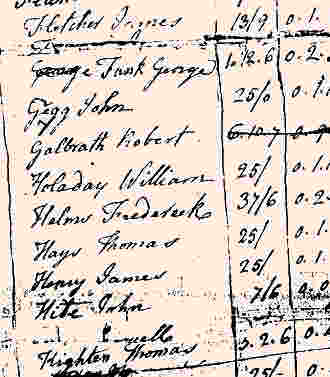 Fletcher James 13/9 0.1.
Funk George 1.12.6 0.2.
Gegg John 25/0 0.1.
Galbrath Robert 6.10.7
Holaday William 25/ 0.1.
Helms Frederick 37/6 0.2
Hays Thomas 25/ 0.1.
Henry James 25/ 0.1.
Hite John 7/6 0.0
3.2.6 0.
Thomas 25/- 0.